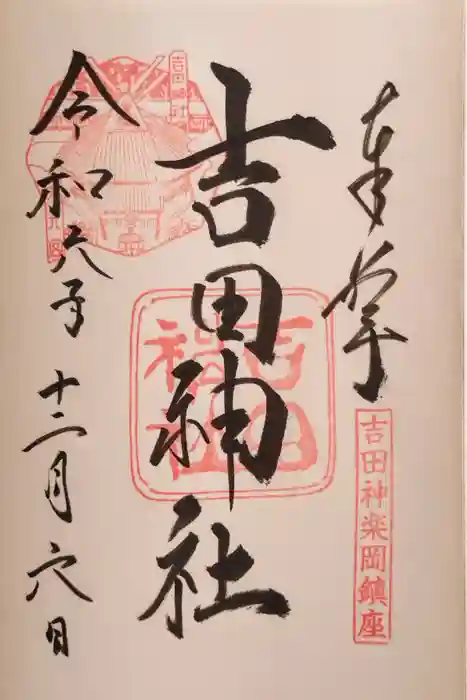 奉拝
吉田神楽岡鎮座
吉田神社
吉田神社
吉田神社
令和六年十二月六日